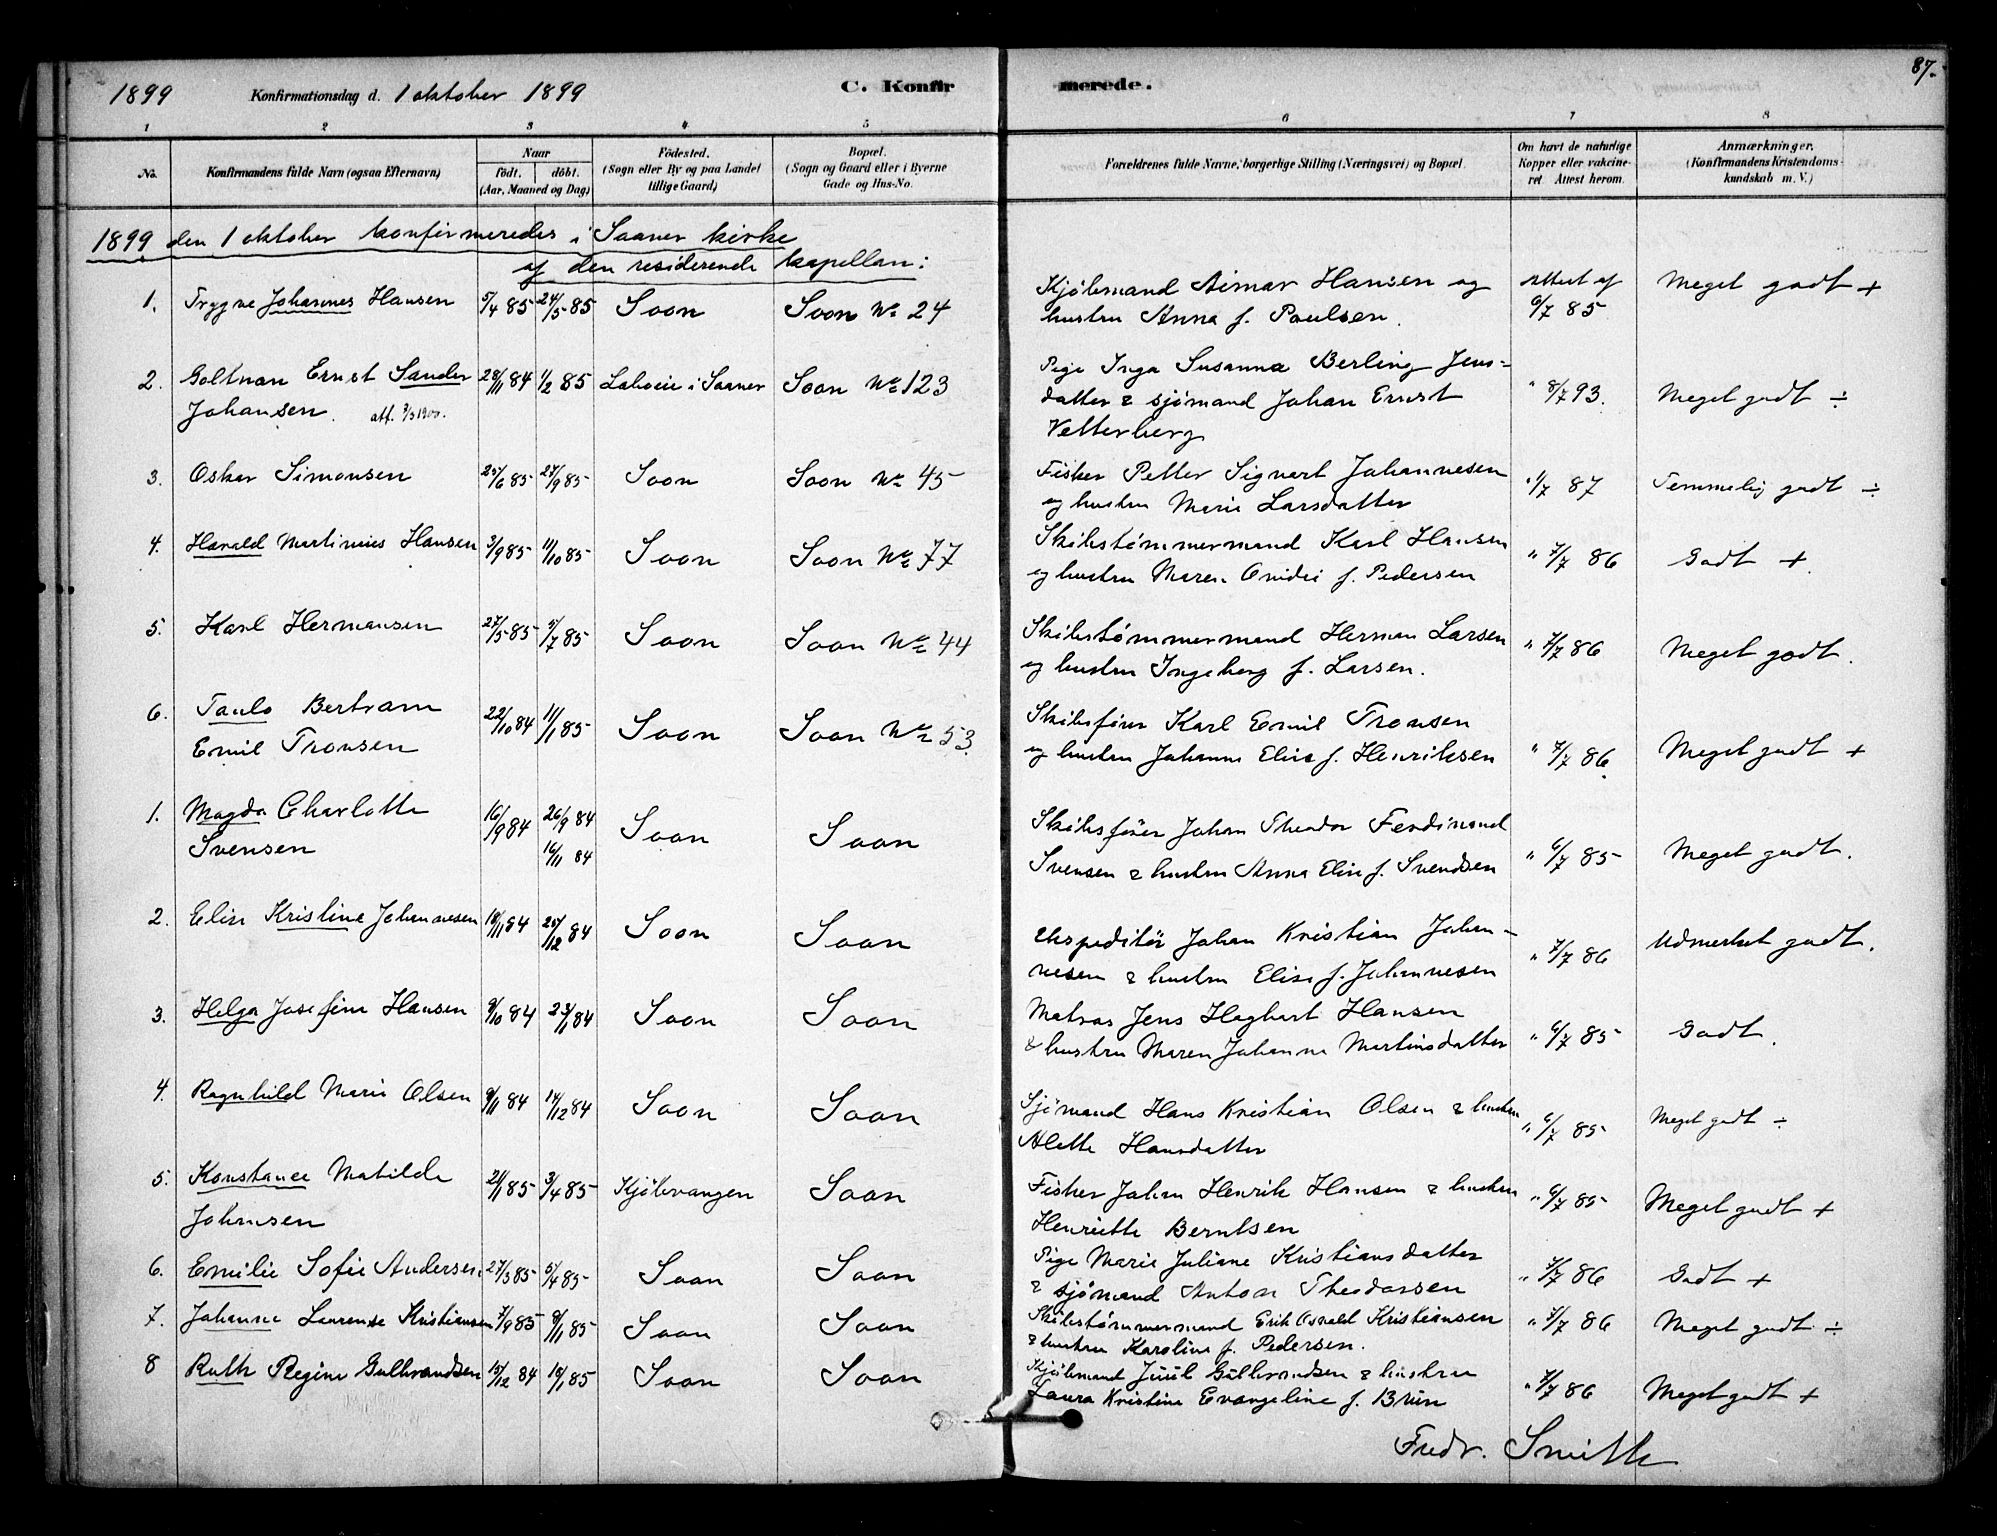 1899 Konfirmationsdag d. 1 oktober 1899 C. Konfir merede. 87.
1 2 3 4 5 6 7 8
No. Konfirmandens fulde Navn (ogsaa Efternavn) Naar født. døbt. (Aar, Maaned og Dag) Fødested. (Sogn eller By og paa Landet tillige Gaard) Bopæl. (Sogn og Gaard eller i Byerne Gade og Hus-No. Forældrenes fulde Navne, borgerlige Stilling (Næringsvei) og Bopæl. Om havt de naturlige Kopper eller vakcineret. Attest herom. Anmærkninger. (Konfirmandens Kristendomskundskab m. V.)
1899 den 1 oktober konfirmeredes i Saaner kirke
af den residerende kapellan:
1. Trygve Johannes Hansen 5/4 85 24/5 85 Soon Soon No 24 Kjøbmand Aimar Hansen og Attest af Meget godt +
hustru Anna f. Paulsen. 6/7 85
2. Goltman Ernst Sander 28/11 84 1/2 85 Labveie i Saaner Soon No 123 Pige Inga Susanna Berling Jens-
Johansen. att. 3/3 1900. datter & sjømand Johan Ernst " 8/7 93. Meget godt ÷
Vetterberg
3. Oskar Simonsen 25/6 85 27/9 85 Soon Soon No 45 Fisker Petter Sigvart Johannesen " 1/7 87 Temmelig godt ÷
og hustru Marie Larsdatter
4. Harald Martinius Hansen 3/9 85 11/10 85 Soon Soon No 77 Skibstømmermand Karl Hansen " 7/7 86 Godt +
og hustru Maren Ovidei f. Pedersen
5. Karl Hermansen 27/5 85 5/7 85 Soon Soon No 44 Skibstømmermand Herman Larsen " 7/7 86 Meget godt.
og hustru Ingeborg f. Larsen.
6. Paulo Bertram 22/10 84 11/1 85 Soon Soon No 53 Skibsfører Karl Emil Tronsen
Emil Tronsen og hustru Johanne Elise f. Henriksen " 7/7 86 Meget godt +
1. Magda Charlotte 16/9 84 26/9 84 Soon Soon Skibsfører Johan Theodor Ferdinand
Svensen 16/11 84 Svensen & hustru Anna Elise f. Svendsen " 6/7 85 Meget godt.
2. Elise Kristine Johannesen 18/11 84 25/12 84 Soon Soon Ekspeditør Johan Kristian Johan-
nesen & hustru Elise f. Johannesen " 7/7 86 Udmerket godt.
3. Helga Josefine Hansen 9/10 84 23/11 84 Soon Soon Matros Jens Hagbart Hansen
& hustru Maren Johanne Martinsdatter " 6/7 85 Godt.
4. Ragnhild Marie Olsen 9/11 84 14/12 84 Soon Soon Sjømand Hans Kristian Olsen & hustru
Alette Hansdatter " 6/7 85 Meget godt ÷
5. Konstance Matilde 21/1 85 3/4 85 Kjøbvangen Soon Fisker Johan Henrik Hansen & hustru " 6/7 85 Meget godt +
Johansen Henriette Berntsen
6. Emilie Sofie Andersen 27/3 85 5/4 85 Soon Soon Pige Marie Juliane Kristiansdatter " 7/7 86 Godt +
& sjømand Anton Theodorsen
7. Johanne Laurense Kristiansen 7/9 85 8/11 85 Soon Soon Skibstømmermand Erik Osvald Kristiansen " 7/7 86 Meget godt ÷
& hustru Karoline f. Pedersen.
8 Ruth Regine Gulbrandsen 15/12 84 18/1 85 Soon Soon Kjøbmand Juul Gulbrandsen & hustru
Laura Kristine Evangeline f. Brün " 7/7 86 Meget godt +
Fredr. Smith